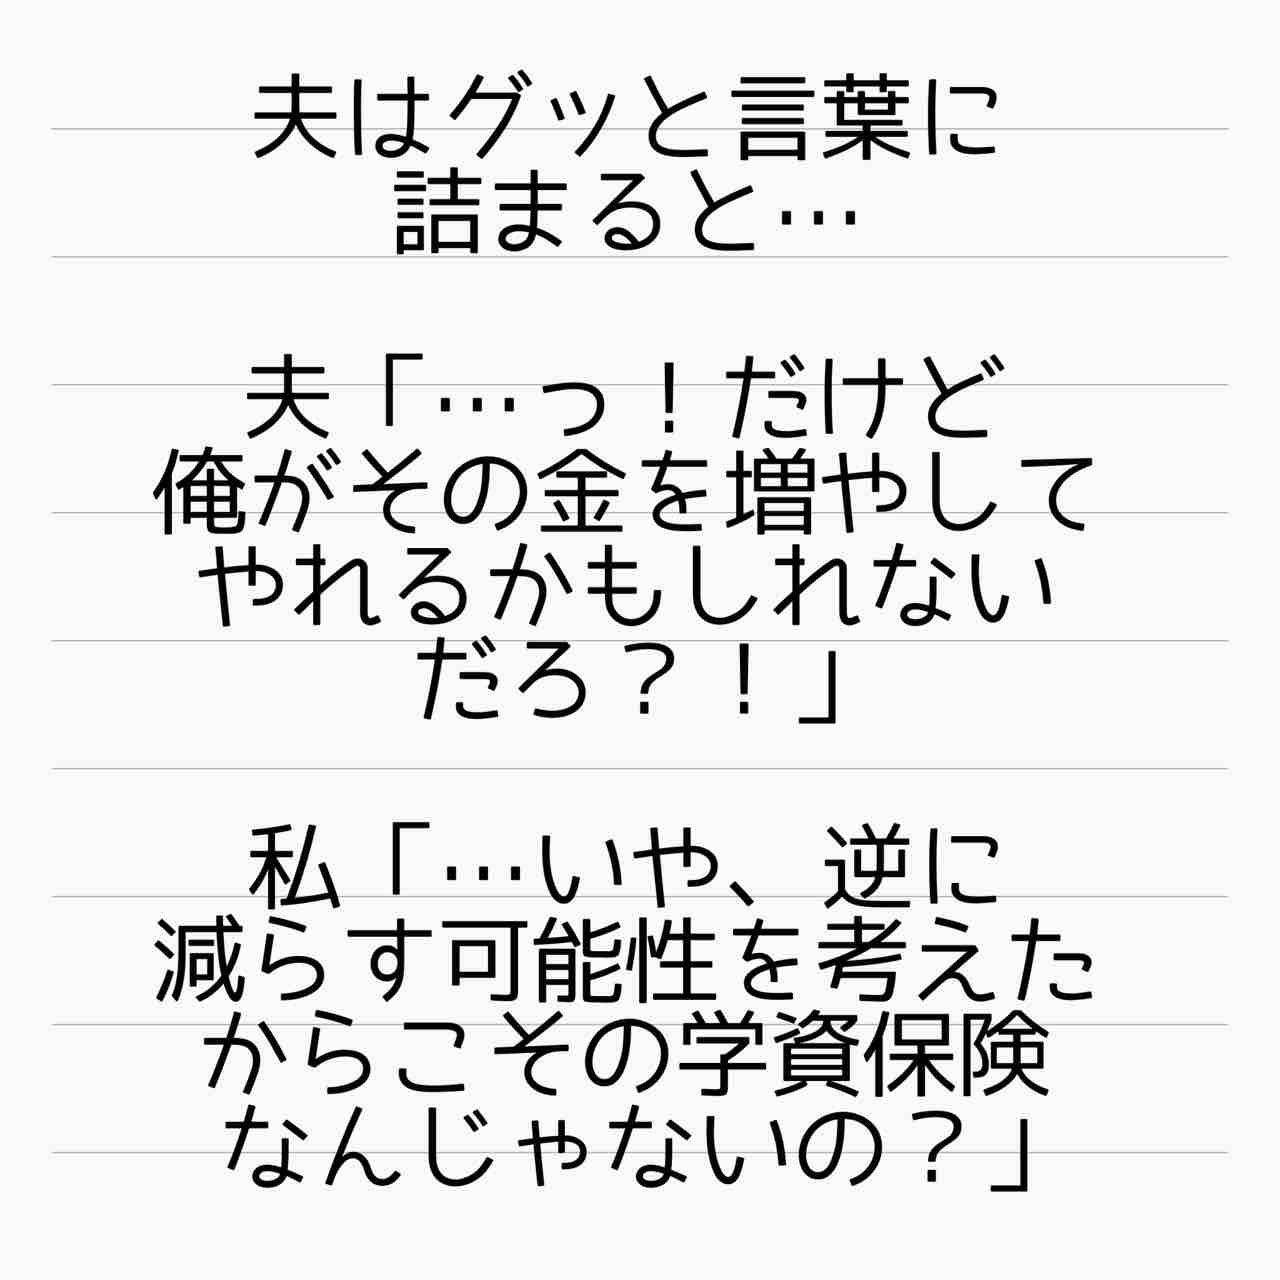 夫はグッと言葉に
詰まると…
夫「…っ！だけど
俺がその金を増やして
やれるかもしれない
だろ？！」
私「…いや、逆に
減らす可能性を考えた
からこその学資保険
なんじゃないの？」